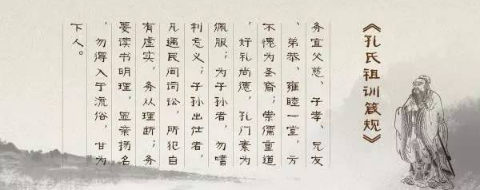 《孔氏祖训箴规》
务宜父慈、子孝、兄友
、弟恭，雍睦一堂，方
不愧为圣裔；崇儒重道
，好礼尚德，孔门素为
佩服；为子孙者，勿嗜
利忘义；子孙出仕者，
凡遇民间词讼，所犯自
有虚实，务从理断；务
要读书明理，显亲扬名
，勿得入于流俗，甘为
下人。